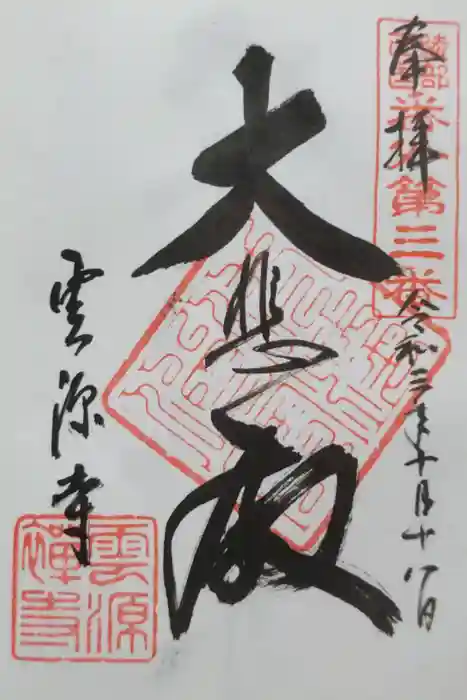 奉拝
綾部西国観音第三番
令和三年十月十八日
大悲殿
雲源寺
雲源禅寺